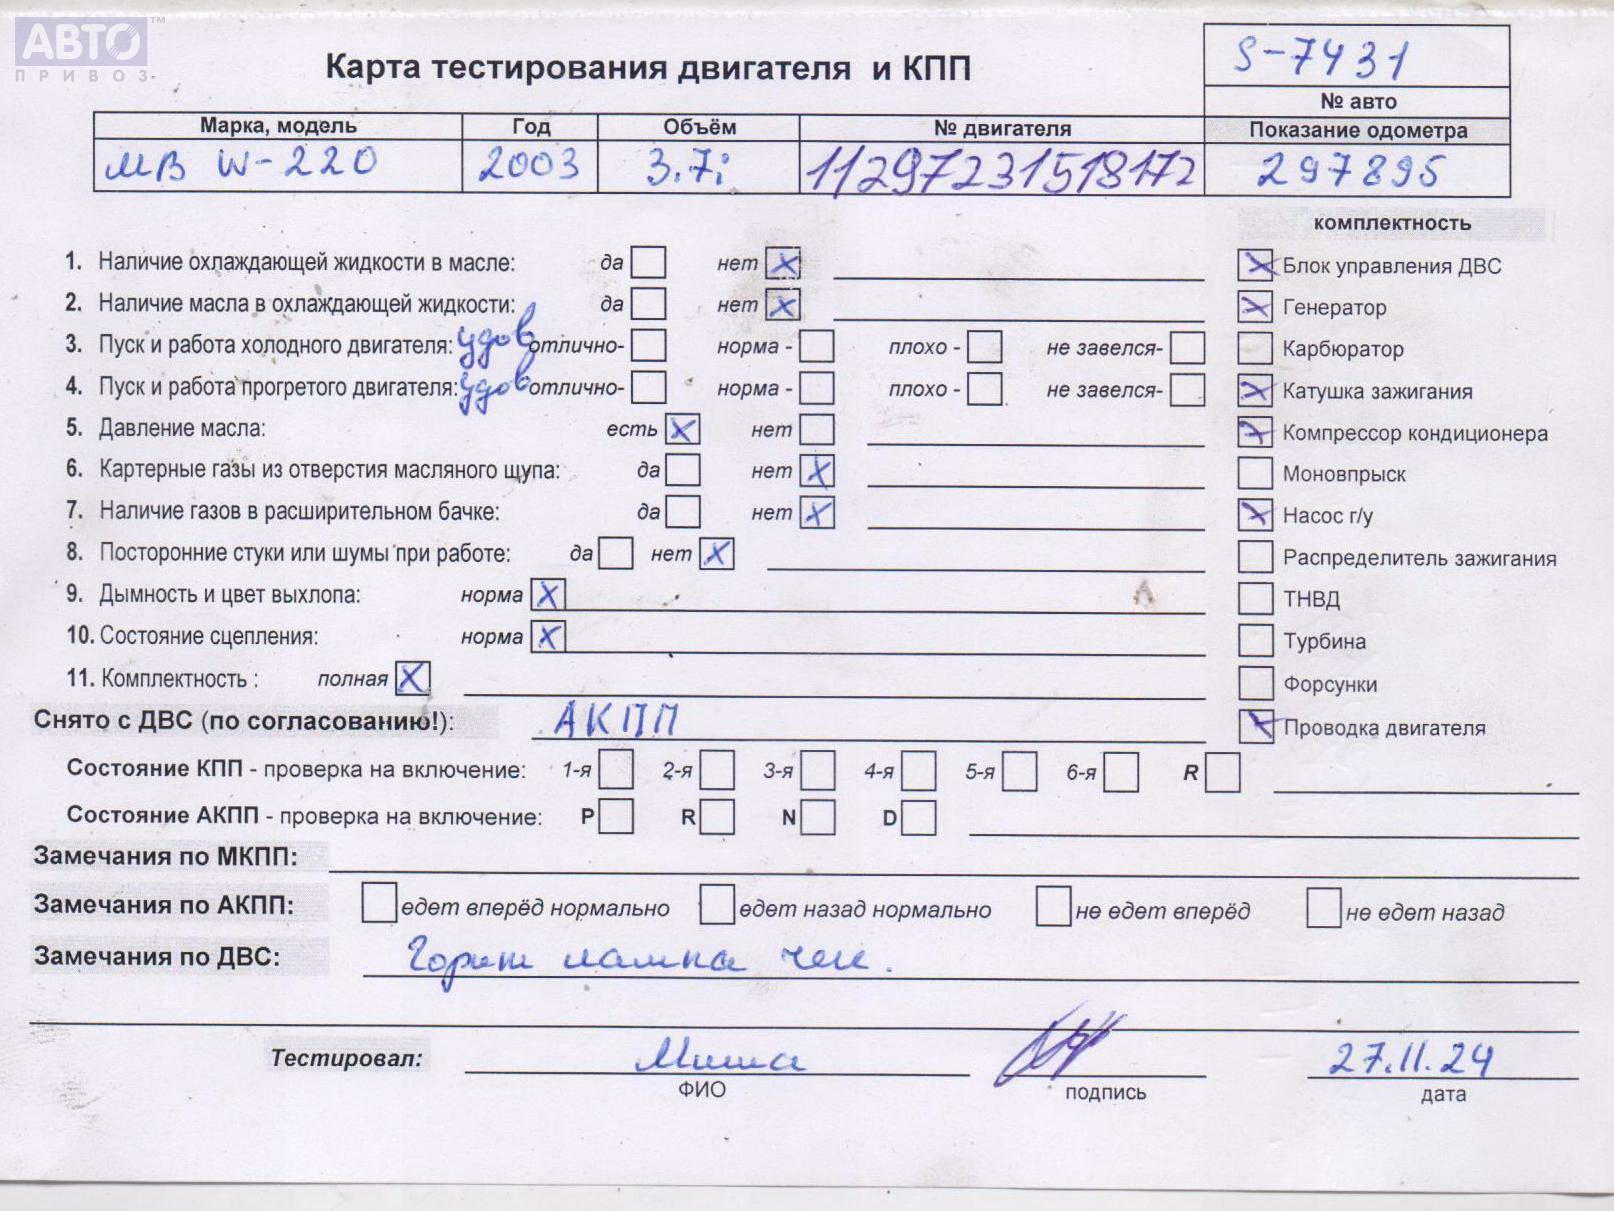 АВТО™
ПРИВОЗ
S-7431
Карта тестирования двигателя и КПП
№ авто
Марка, модель Год Объём № двигателя Показание одометра
МВ W-220 2003 3.7i 11297231518172 297895
комплектность
1. Наличие охлаждающей жидкости в масле: да нет X
X Блок управления ДВС
2. Наличие масла в охлаждающей жидкости: да нет X
X Генератор
3. Пуск и работа холодного двигателя: удов отлично- норма - плохо - не завелся-
Карбюратор
4. Пуск и работа прогретого двигателя: удов отлично- норма - плохо - не завелся-
X Катушка зажигания
5. Давление масла: есть X нет
X Компрессор кондиционера
6. Картерные газы из отверстия масляного щупа: да нет X
Моновпрыск
7. Наличие газов в расширительном бачке: да нет X
X Насос г/у
8. Посторонние стуки или шумы при работе: да нет X
Распределитель зажигания
9. Дымность и цвет выхлопа: норма X
ТНВД
10. Состояние сцепления: норма X
Турбина
11. Комплектность : полная X
Форсунки
Снято с ДВС (по согласованию!): АКПП
X Проводка двигателя
Состояние КПП - проверка на включение: 1-я 2-я 3-я 4-я 5-я 6-я R
Состояние АКПП - проверка на включение: P R N D
Замечания по МКПП:
Замечания по АКПП: едет вперёд нормально едет назад нормально не едет вперёд не едет назад
Замечания по ДВС: Горит лампа чек.
Тестировал: Миша 27.11.24
ФИО подпись дата